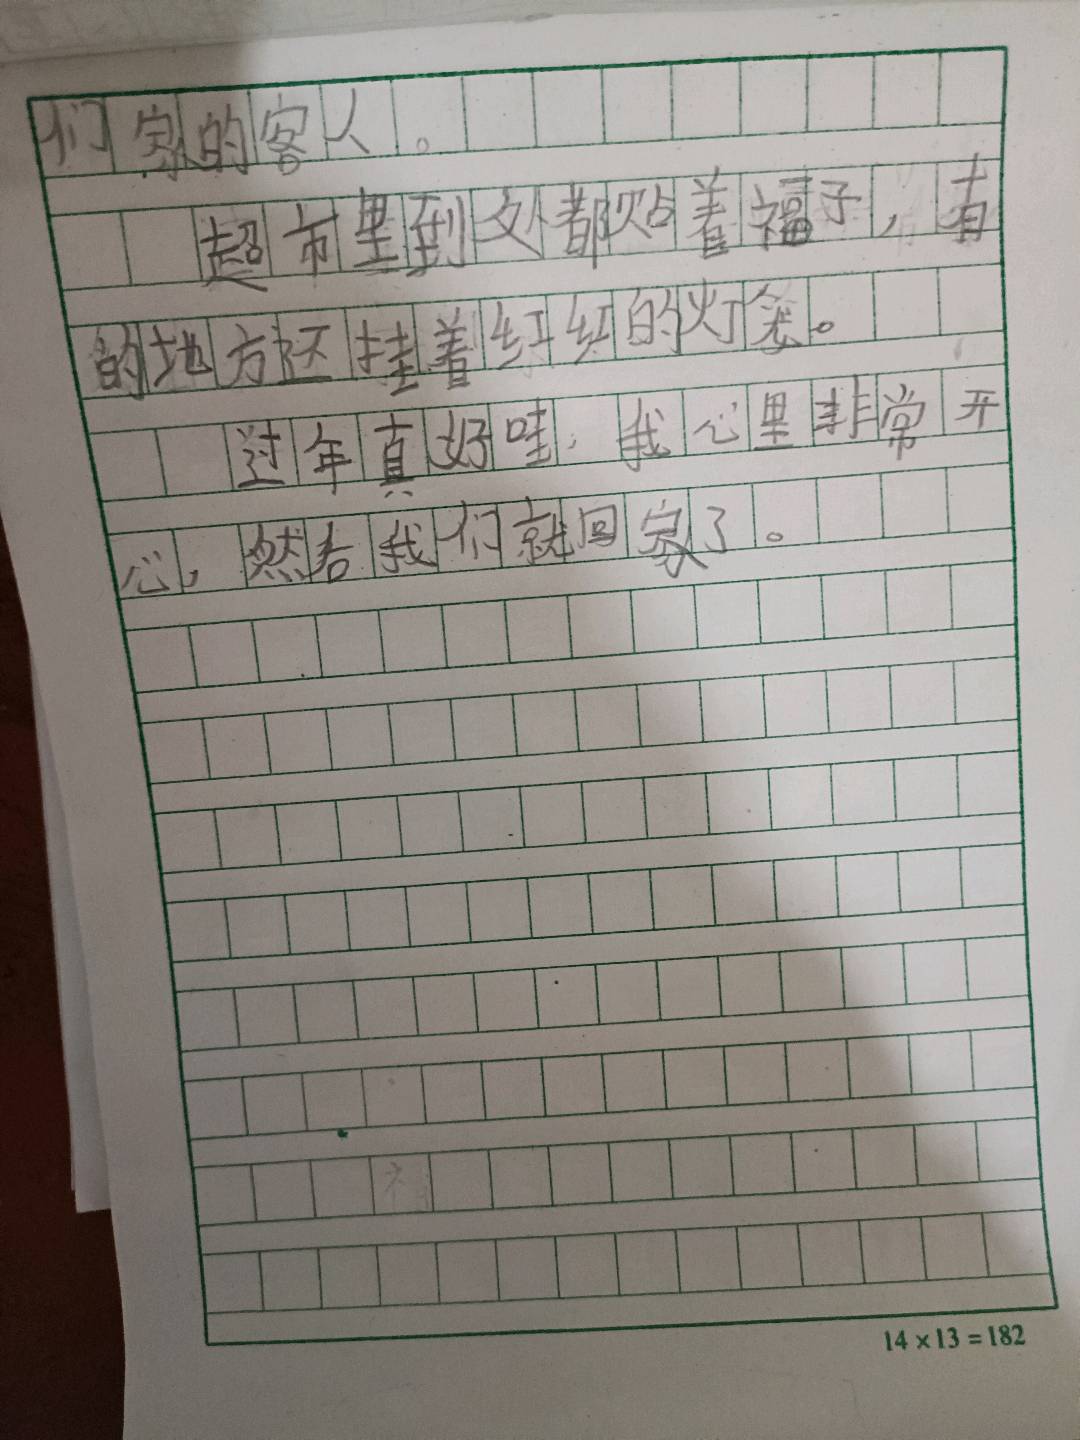 们家的客人。
超市里到处都贴着福子，有
的地方还挂着红红的灯笼。
过年真好哇，我心里非常开
心，然后我们就回家了。
14×13=182